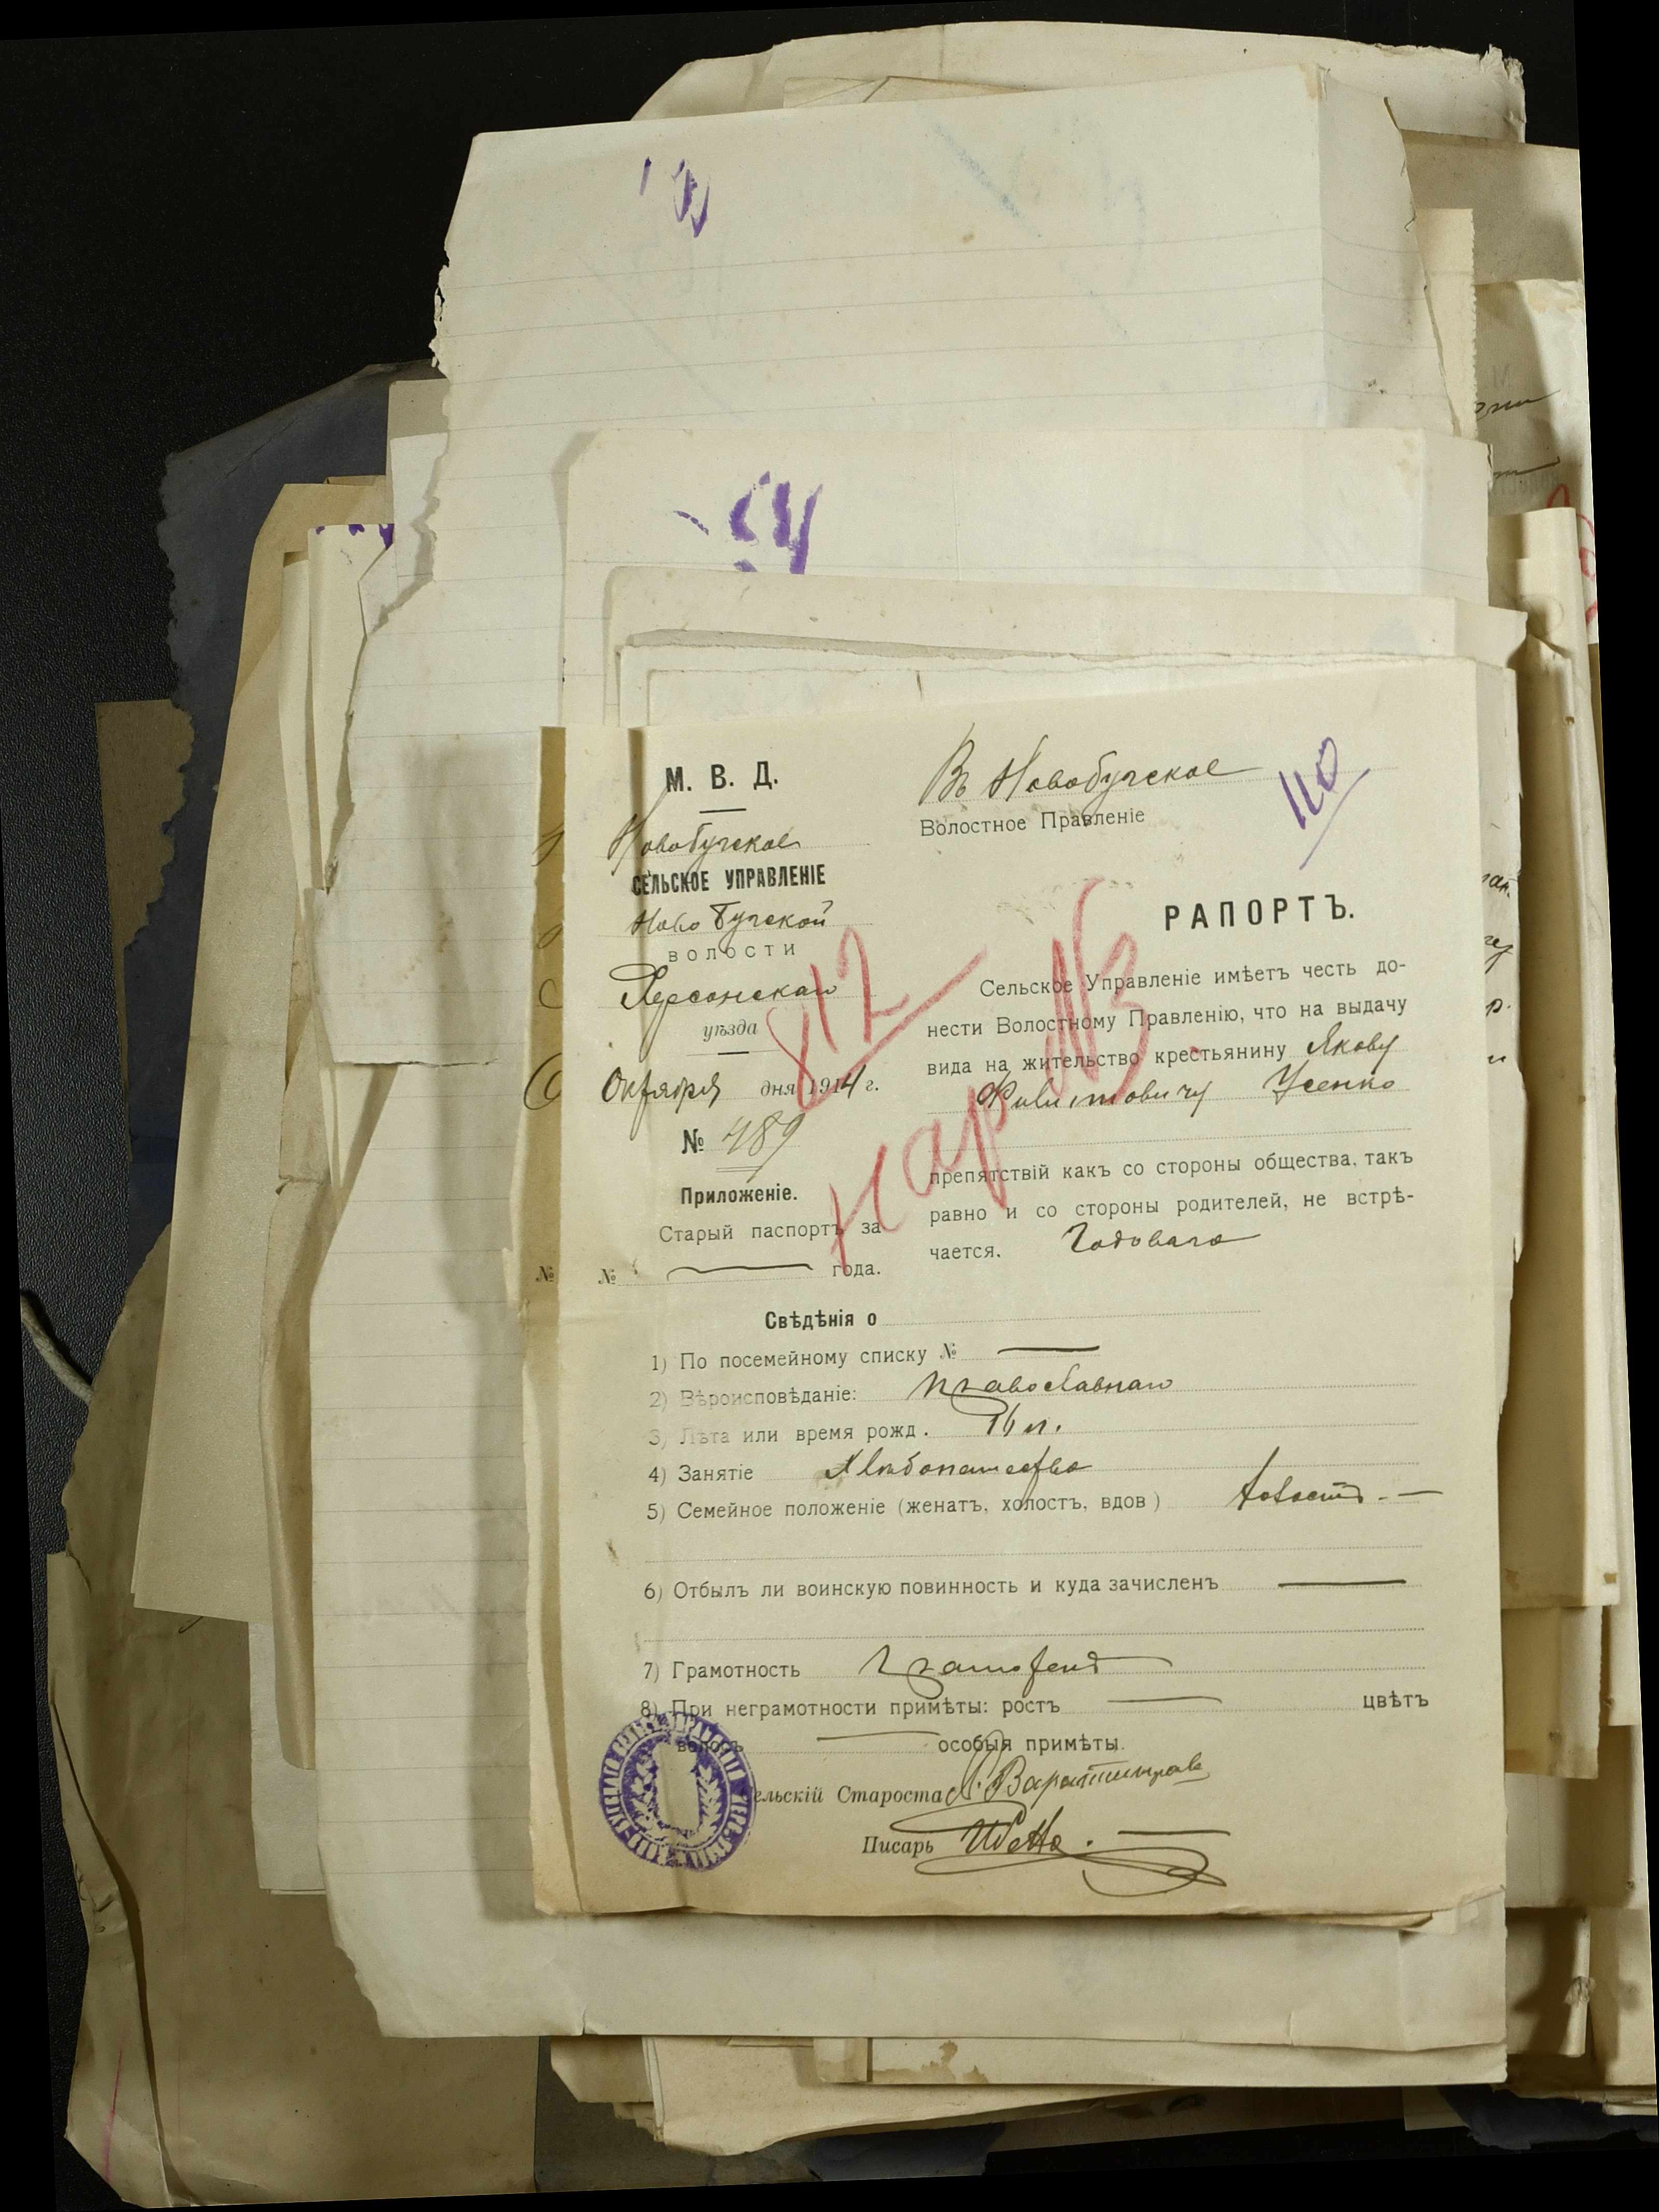 54
М. В. Д.
Новобугское
СЕЛЬСКОЕ УПРАВЛЕНІЕ
Ново Бугской
волости
Херсонскаго
уѣзда
Октября дня 1914 г.
№ 489
Приложеніе.
Старый паспортъ за
№ года.
Въ Новобугское
110
Волостное Правленіе
РАПОРТЪ.
812
Сельское Управленіе имѣетъ честь до-
нести Волостному Правленію, что на выдачу
вида на жительство крестьянину Якову
Филипповичу Усенко
препятствій какъ со стороны общества, такъ
равно и со стороны родителей, не встрѣ-
чается. Годоваго
Свѣдѣнія о
1) По посемейному списку № —
2) Вѣроисповѣданіе: православнаго
3) Лѣта или время рожд. 16 л.
4) Занятіе Хлѣбопашество
5) Семейное положеніе (женатъ, холостъ, вдов ) холостъ. —
6) Отбылъ ли воинскую повинность и куда зачисленъ —
7) Грамотность грамотенъ
8) При неграмотности примѣты: ростъ — цвѣтъ
волосъ — особыя примѣты.
Сельскій Староста
Писарь